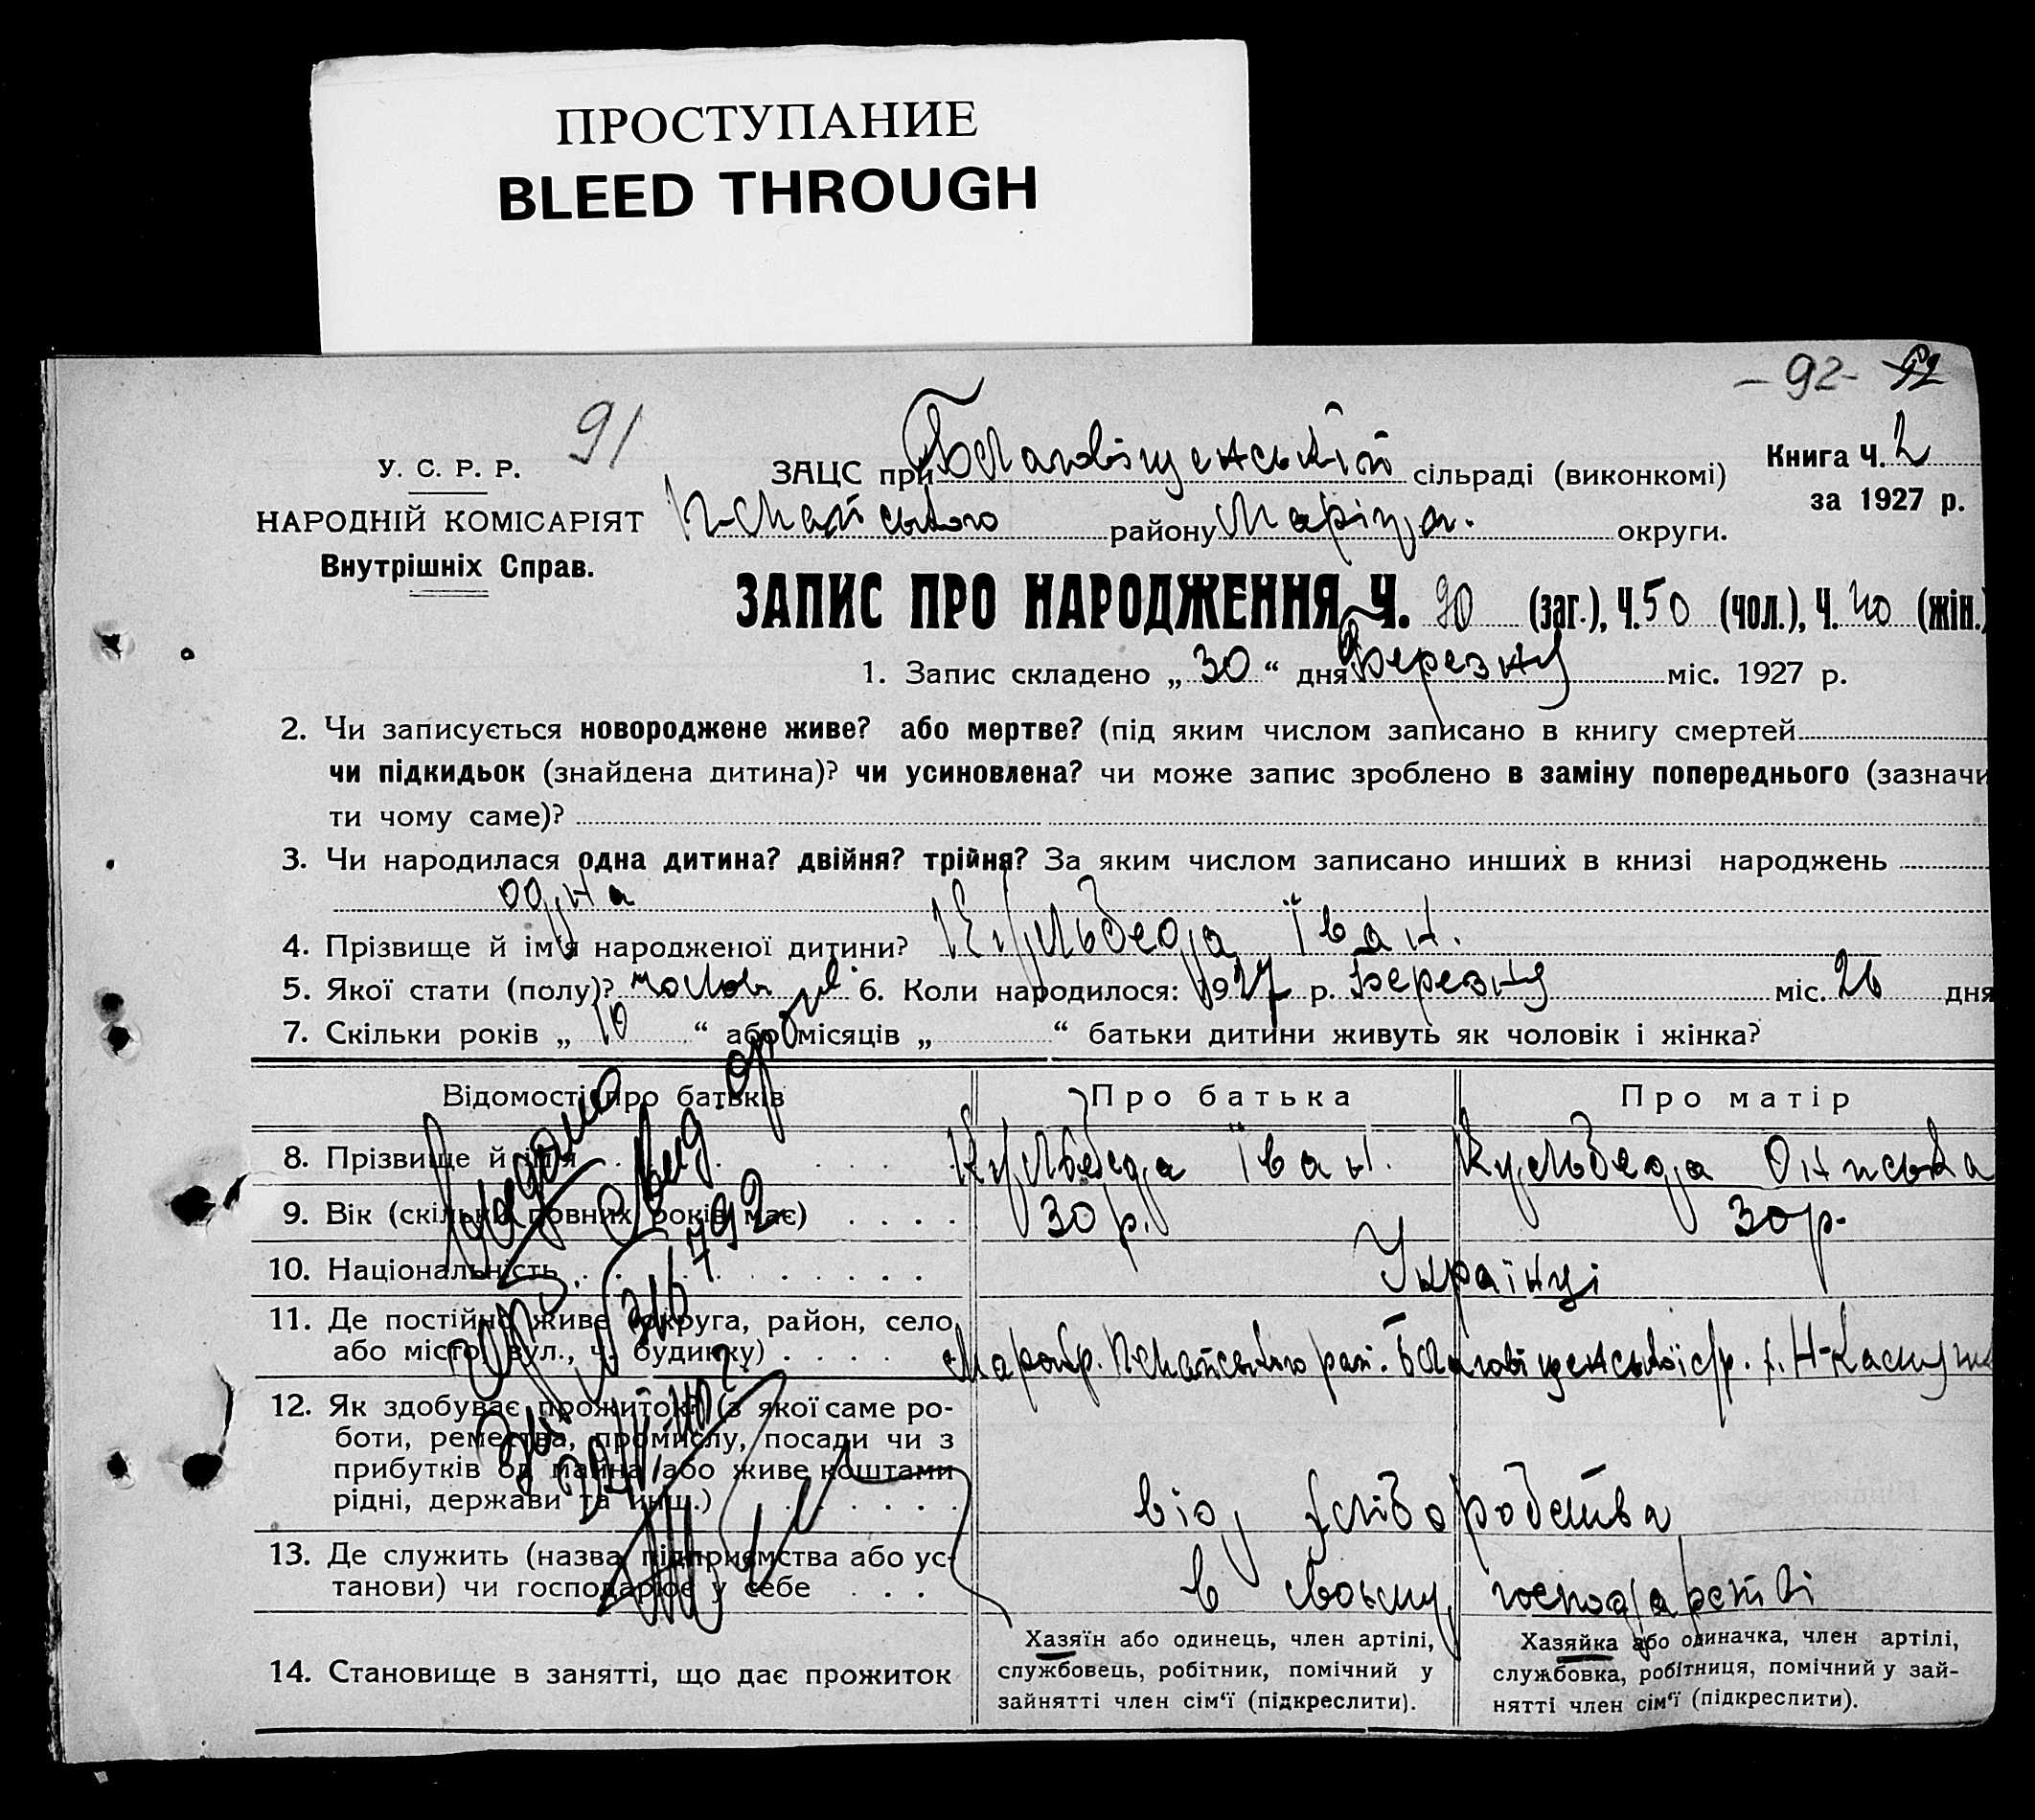 ПРОСТУПАНИЕ
BLEED THROUGH
-92- 92
91
У. С. Р. Р.
НАРОДНІЙ КОМІСАРІЯТ
Внутрішніх Справ.
Книга Ч. 2
за 1927 р.
ЗАЦС при Благовіщенській сільраді (виконкомі)
району Маріуп. округи.
ЗАПИС ПРО НАРОДЖЕННЯ Ч. 90 (заг.), Ч. 50 (чол.), Ч. 40 (жін.)
1. Запис складено „ 30 “ дня Березня міс. 1927 р.
2. Чи записується новороджене живе? або мертве? (під яким числом записано в книгу смертей
чи підкидьок (знайдена дитина)? чи усиновлена? чи може запис зроблено в заміну попереднього (зазначи
ти чому саме)?
3. Чи народилася одна дитина? двійня? трійня? За яким числом записано инших в книзі народжень
одна
4. Прізвище й ім'я народженої дитини? Кульбеда Іван.
5. Якої стати (полу)? чолов 6. Коли народилося: 1927 р. Березня міс. 26 дня
7. Скільки років „ 10 “ або місяців „ “ батьки дитини живуть як чоловік і жінка?
Відомості про батьків Про батька Про матір
8. Прізвище й ім'я Кульбеда Іван. Кульбеда Ониська
9. Вік (скільки повних років має) 30 р. 30 р.
10. Національність Українці
11. Де постійно живе (округа, район, село,
або місто, вул., ч. будинку) Благовіщенської с/р.
12. Як здобуває прожиток? (з якої саме ро-
боти, ремества, промислу, посади чи з
прибутків од майна або живе коштами
рідні, держави та инш.) від хліборобства
13. Де служить (назва підприємства або ус-
танови) чи господарює у себе в своьму господарстві
14. Становище в занятті, що дає прожиток
Хазяїн або одинець, член артілі,
службовець, робітник, помічний у
зайнятті член сім'ї (підкреслити).
Хазяйка або одиначка, член артілі,
службовка, робітниця, помічний у зай-
нятті член сім'ї (підкреслити).